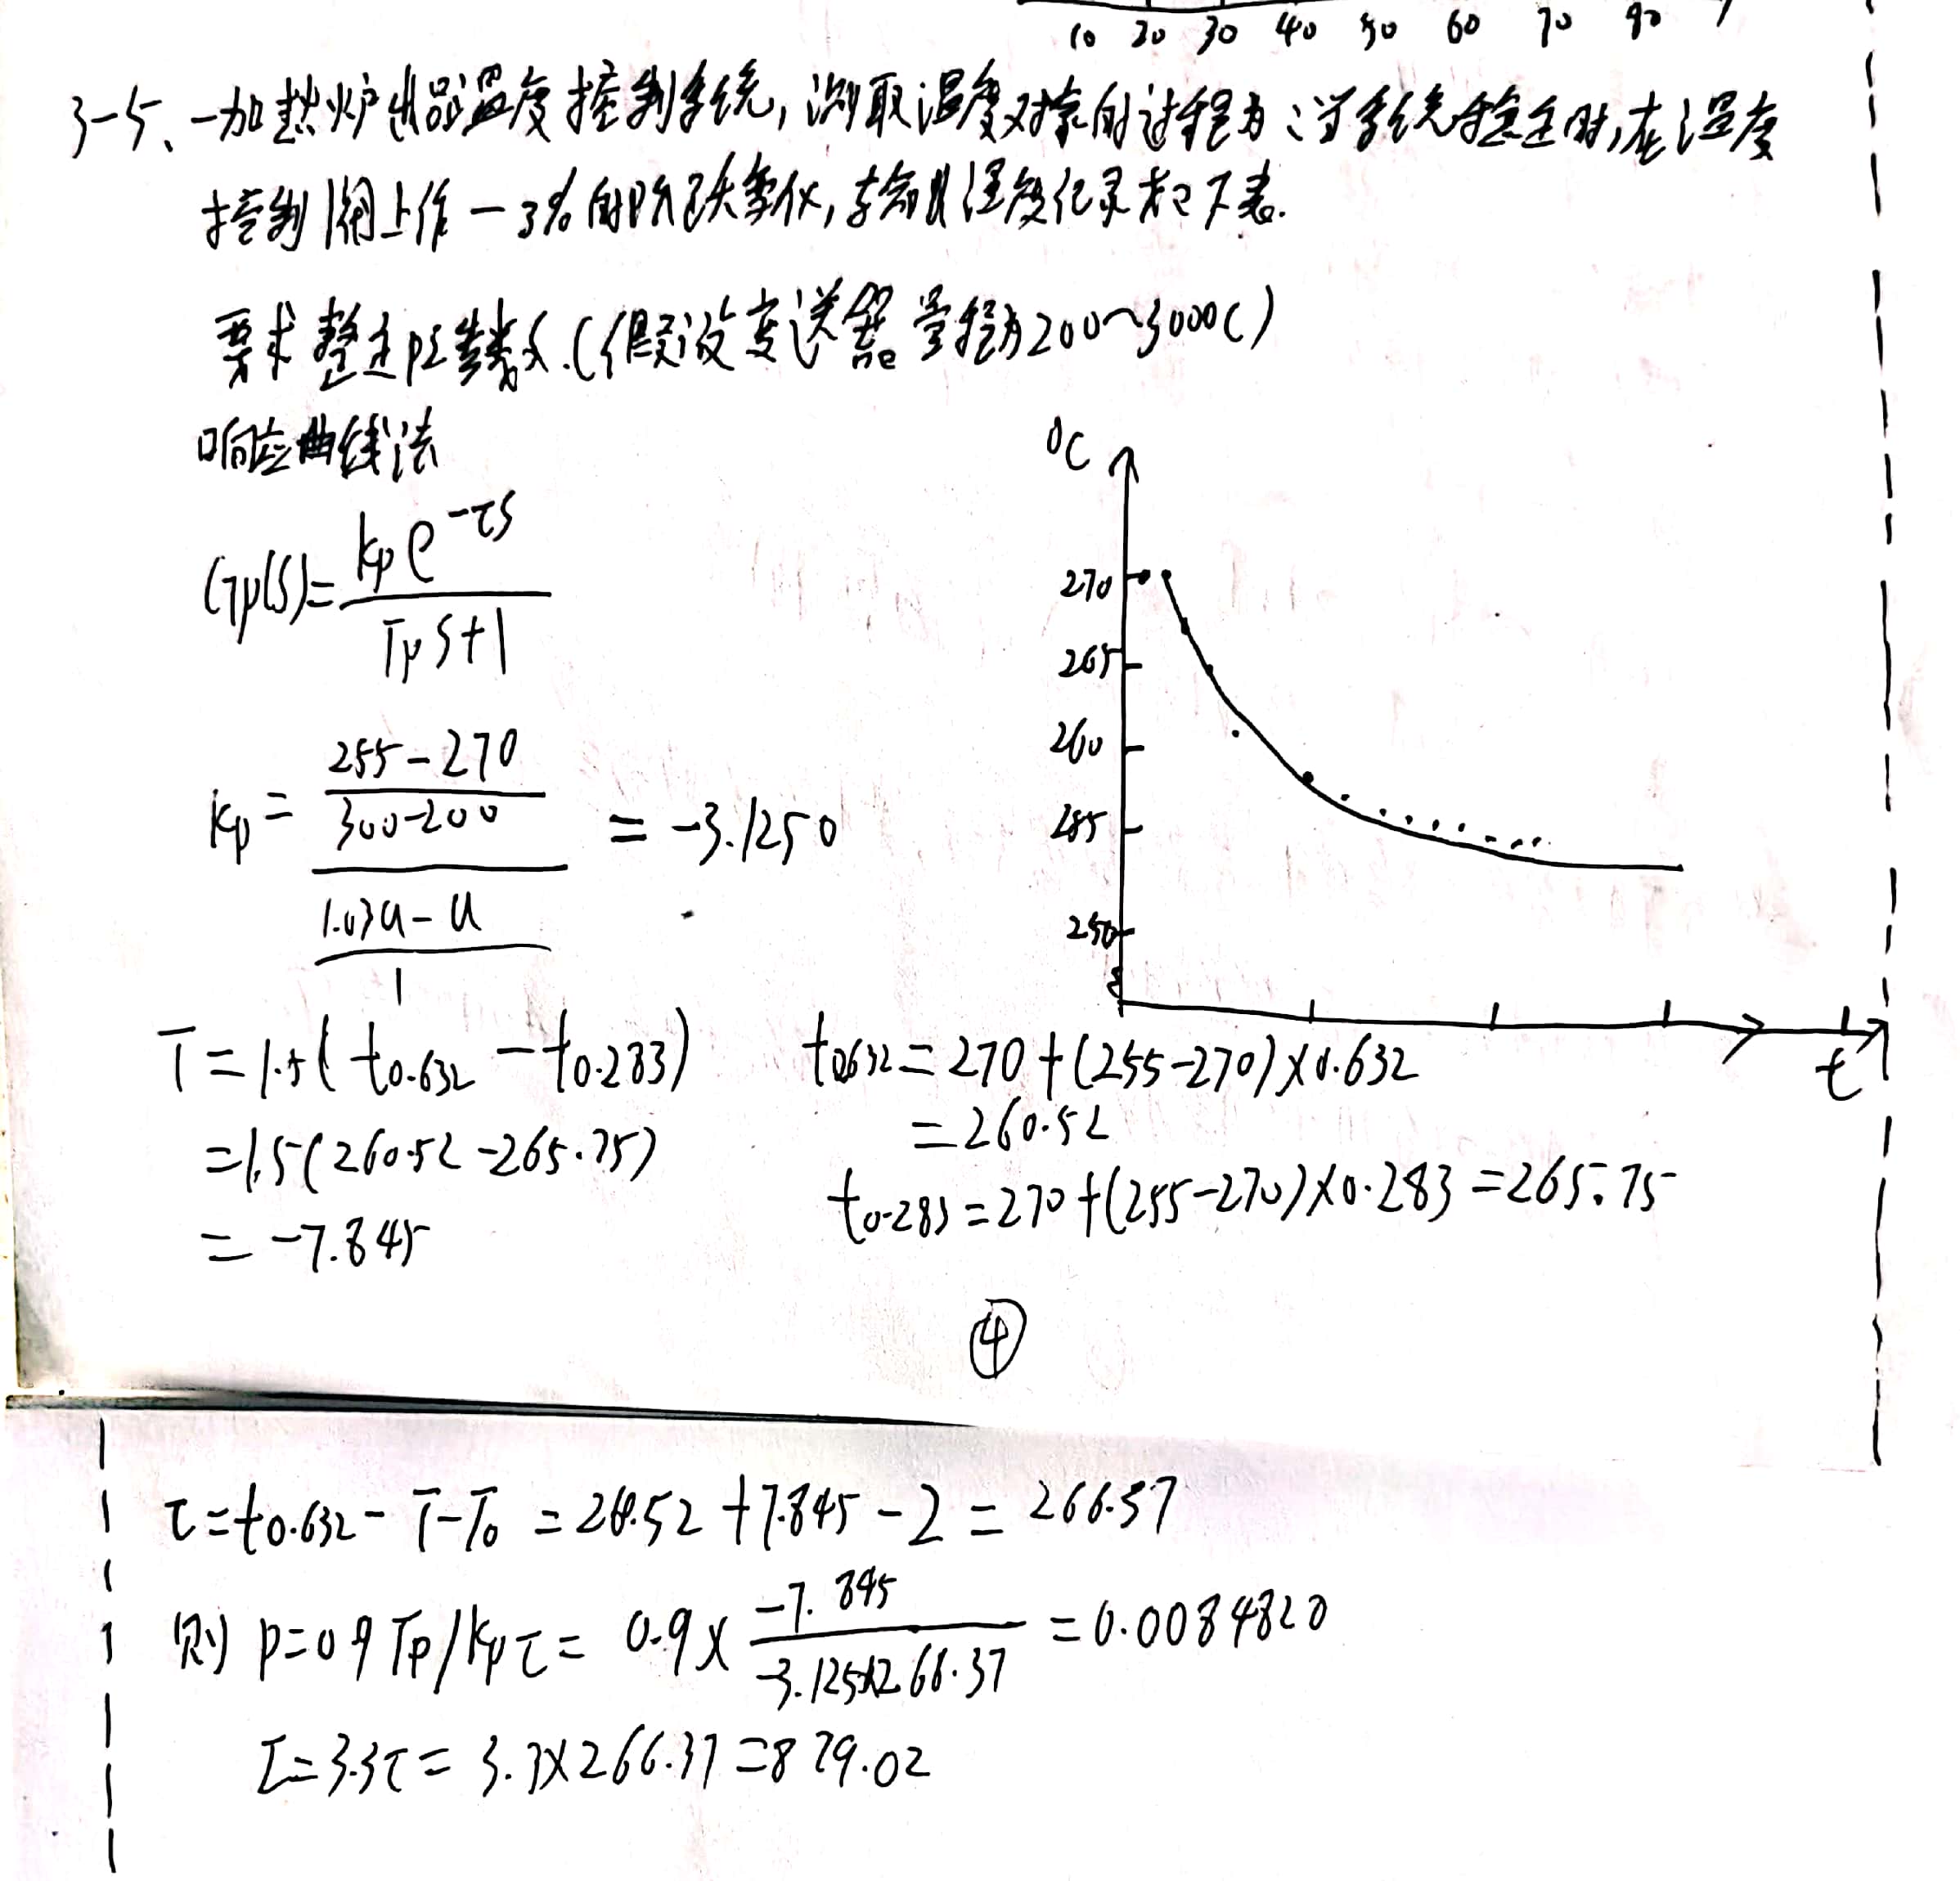 10 20 30 40 50 60 70 90
3-5、一加热炉出口温度控制系统,测取温度对象的过程为:当系统稳定时,在温度
控制阀上作一3%的阶跃变化,输出温度记录如下表.
要求整定PI参数.(假设变送器量程为200~300℃)
响应曲线法
Gp(s)=kp e^-τs / Tp s+1
kp = (255-270 / 300-200) / (1.03u-u / 1) = -3.1250
℃
270
265
260
255
250
t
T=1.5(t0.632-t0.283)
=1.5(260.52-265.75)
=-7.845
t0.632=270+(255-270)×0.632
=260.52
t0.283=270+(255-270)×0.283=265.75
④
τ=t0.632-T-T0=260.52+7.845-2=266.37
则 P=0.9Tp/kpτ=0.9×-7.845/-3.125×266.37=0.0084820
I=3.3τ=3.3×266.37=879.02